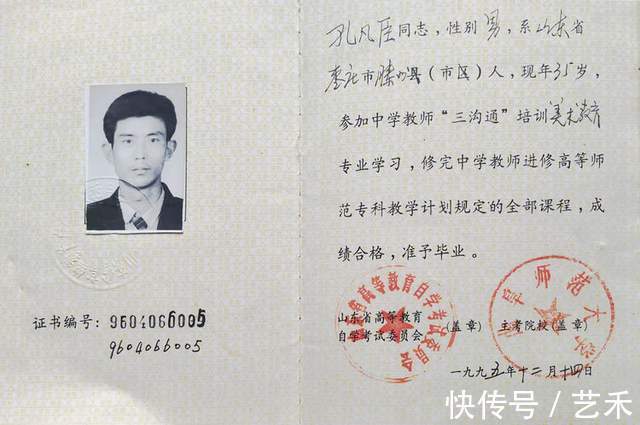 孔凡臣同志，性别男，系山东省
枣庄市滕州县（市区）人，现年35岁，
参加中学教师“三沟通”培训美术教育
专业学习，修完中学教师进修高等师
范专科教学计划规定的全部课程，成
绩合格，准予毕业。
证书编号：9604066005
9604066005
山东省高等教育
自学考试委员会
（盖章）
主考院校（盖章）
省高等教育自学考试委员会
阜师范大学
一九九五年十二月十四日
快传号／艺禾